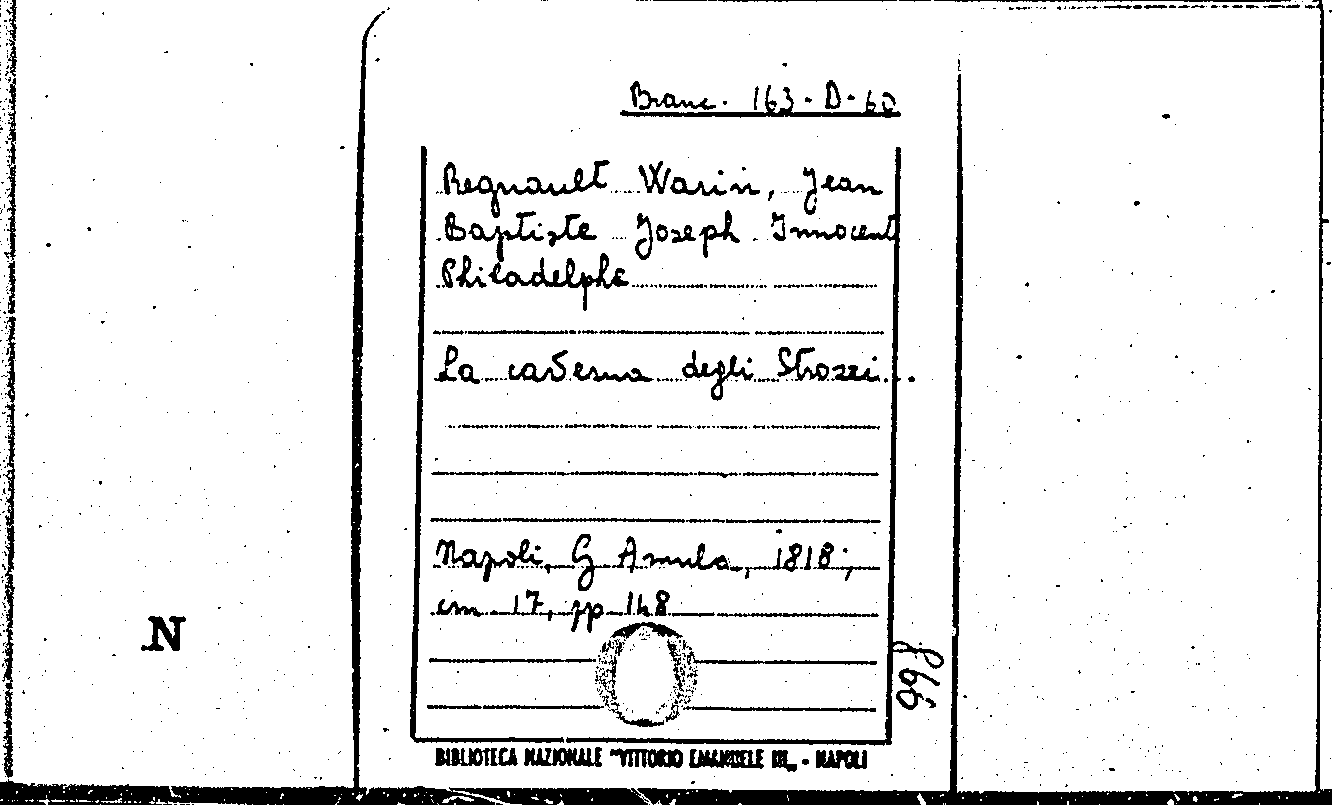 Branc. 163-D-60
Regnault Warin, Jean
Baptiste Joseph Innocent
Philadelphe
La caverna degli Strozzi...
Napoli, G Amula, 1818;
cm 17, pp 148
N
BIBLIOTECA NAZIONALE "VITTORIO EMANUELE III„ - NAPOLI